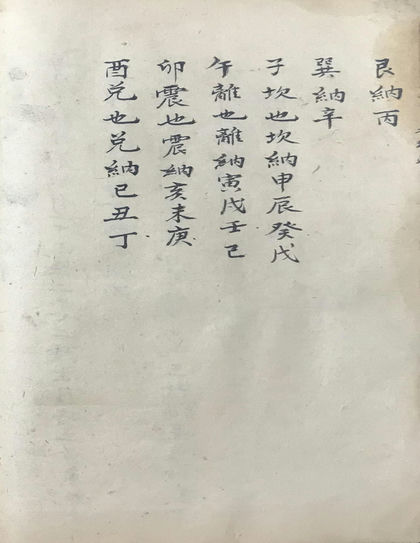 艮納丙
巽納辛
子坎也坎納申辰癸戊
午離也離納寅戌壬己
卯震也震納亥未庚
酉兌也兌納巳丑丁